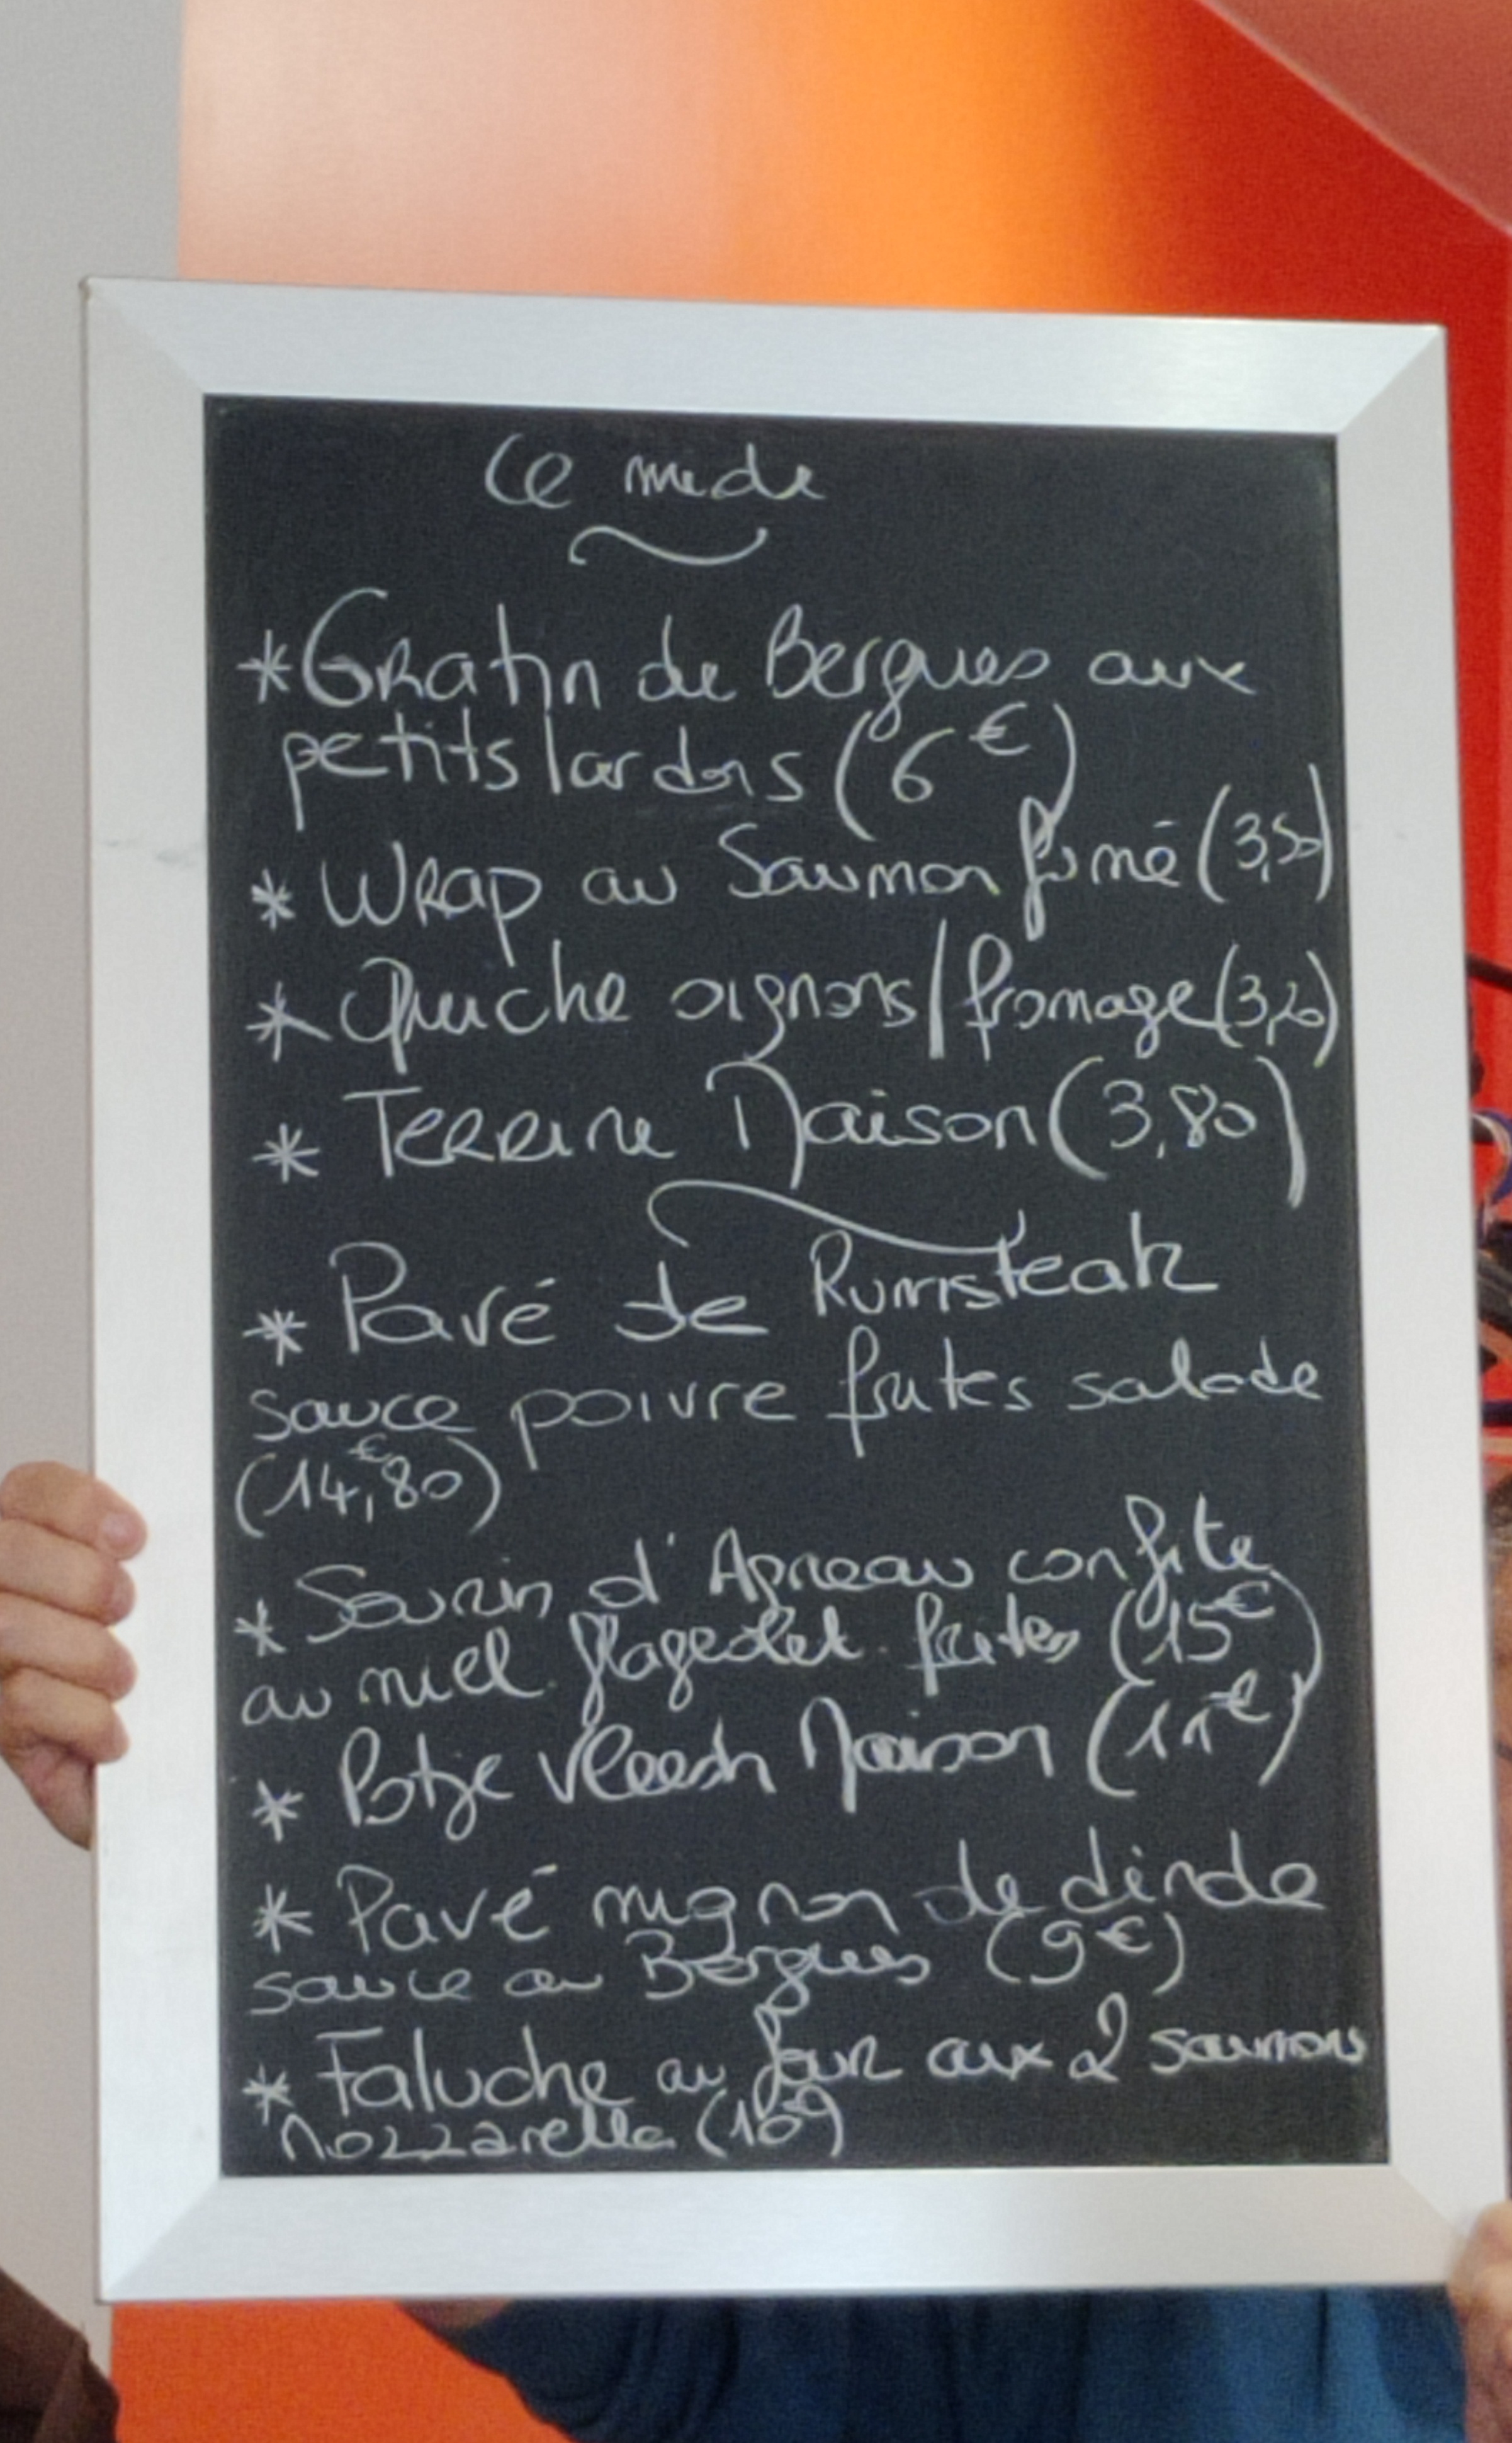 Ce midi
* Gratin de Bergues aux
petits lardons (6€)
* Wrap au Saumon fumé (3,50)
* Quiche oignons/fromage (3,20)
* Terrine Maison (3,80)
* Pavé de Rumsteak
sauce poivre frites salade
(14,€80)
* Souris d'Agneau confite
au miel flageolet frites (15€)
* Potje vleesch Maison (11€)
* Pavé mignon de dinde
sauce au Bergues (9€)
* Faluche au four aux 2 saumons
Mozzarella (10€)